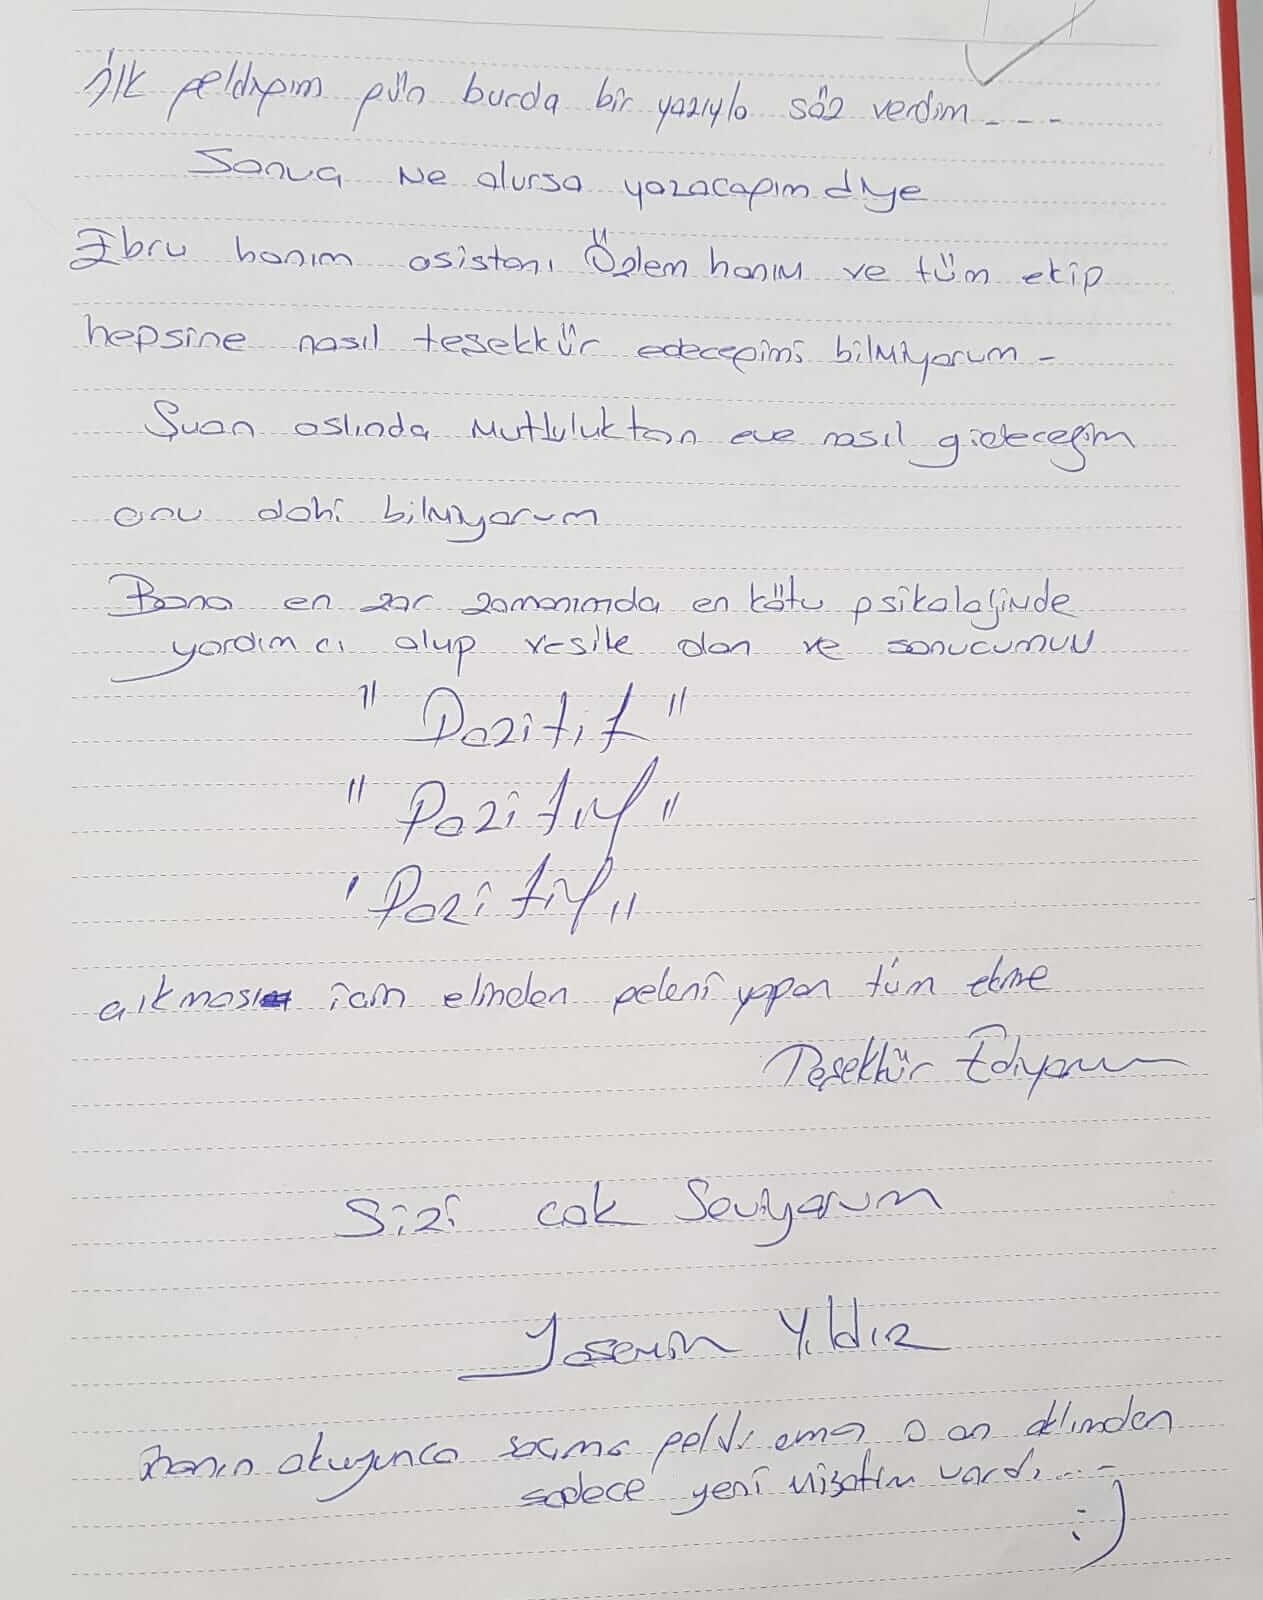 İlk geldiğim gün burda bir yazıyla söz verdim....
Sonuç Ne olursa yazacağım diye
Ebru hanım asistanı Özlem hanım ve tüm ekip
hepsine nasıl teşekkür edeceğimi bilmiyorum -
Şuan aslında mutluluktan eve nasıl gideceğim
onu dahi bilmiyorum
Bana en zor zamanımda en kötü psikolojimde
yardımcı olup vesile olan ve sonucumun
"Pozitif"
"Pozitif"
'Pozitif"
çıkması için elinden geleni yapan tüm ekine
Teşekkür Ediyorum
Sizi çok Seviyorum
Yasemin Yıldız
okuyunca saçma geldi ama o an aklımdan
sadece yeni vardı....
:)